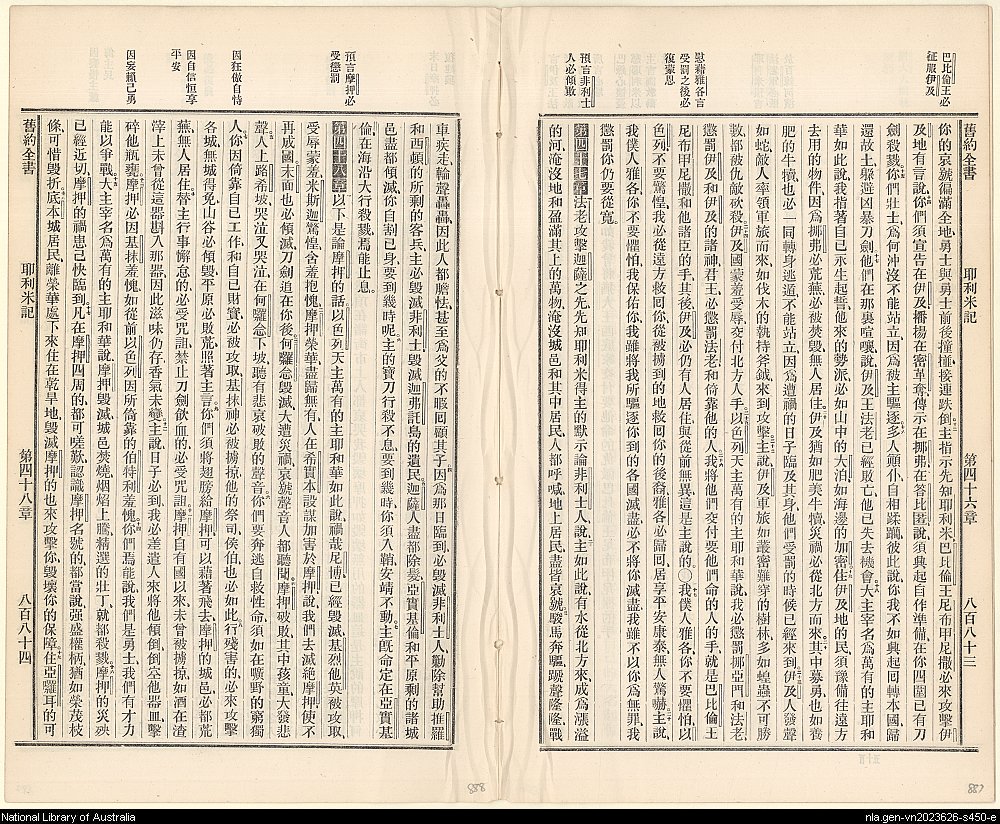 巴比倫王必
征服伊及
慰藉雅各言
受罰之後必
復蒙恩
預言非利士
人必傾敗
舊約全書　耶利米記　第四十六章　八百八十三
你的哀號徧滿全地勇士與勇士前後撞撞接連跌倒主指示先知耶利米巴比倫王尼布甲尼撒必來攻擊伊
及地有言說你們須宣告在伊及播揚在密奪傳示在挪弗在答比匿說須興起自作準備在你四圍已有刀
劍殺戮你們壯士為何沖沒不能站立因為被主驅逐多人顚仆自相蹂躪彼此說你我不如興起回轉本國歸
還故土躱避凶暴刀劍他們在那裏喧嚷說伊及王法老已經敗亡他已失去機會大主宰名為萬有的主耶和
華如此說我指著自己示生起誓他來的勢派必如山中的大泊如海邊的加密住伊及地的民須豫備往遠方
去用的物件因為挪弗必荒蕪必被焚毀無人居住伊及猶如肥美牛犢災禍必從北方而來其中募勇也如養
肥的牛犢也必一同轉身逃遁不能站立因為遭禍的日子臨及其身他們受罰的時候已經來到伊及人發聲
如蛇敵人率領軍旅而來如伐木的執持斧鉞來到攻擊主說伊及軍旅如叢密難穿的樹林多如蝗蟲不可勝
數都被仇敵砍殺伊及國蒙羞受辱交付北方人手以色列天主萬有的主耶和華說我必懲罰挪亞門和法老
懲罰伊及和伊及的諸神君王必懲罰法老和倚靠他的人我將他們交付要他們命的人的手就是巴比倫王
尼布甲尼撒和他諸臣的手其後伊及必仍有人居住與從前無異這是主說的○我僕人雅各你不要懼怕以
色列不要驚惶我必從遠方救回你從被擄到的地救回你的後裔雅各必歸回居享平安康泰無人驚嚇主說
我僕人雅各你不要懼怕我保佑你我雖將我所驅逐你到的各國滅盡必不將你滅盡我雖不以你為無罪我
懲罰你仍要從寬
第四十七章法老攻擊迦薩之先先知耶利米得主的默示論非利士人說主如此說有水從北方來成為漲溢
的河淹沒地和盈滿其上的萬物淹沒城邑和其中居民人都呼喊地上居民盡皆哀號駿馬奔驅蹏聲隆隆戰
預言摩押必
受懲罰
因狂傲自恃
因自信恒享
平安
因妄賴己勇
車疾走輪聲轟轟因此人都膽怯甚至為父的不暇回顧其子因為那日臨到必毀滅非利士人勦除幫助推羅
和西頓的所剩的客兵主必毀滅非利士毀滅迦弗託島的遺民迦薩人盡都除髮亞實基倫和平原剩的諸城
邑盡都傾滅你自割己身要到幾時呢主的寶刀行殺不息要到幾時你須入鞘安靖不動主旣命定在亞實基
倫在海沿大行殺戮焉能止息
第四十八章以下是論摩押的話以色列天主萬有的主耶和華如此說禍哉尼博已經毀滅基烈他英被攻取
受辱蒙羞米斯迦驚惶含羞抱愧摩押榮華盡歸無有人在希實本設謀加害於摩押說我們去滅絶摩押使不
再成國末面也必傾滅刀劍追在你後何囉念毀滅大遭災禍哀號聲音人都聽聞摩押破敗其中孩童大發悲
聲人上路希坡哭泣又哭泣在何囉念下坡聽有悲哀破敗的聲音你們要奔逃自救性命須如在曠野的窮獨
人你因倚靠自己工作和自己財寶必被攻取基抹神必被擄掠他的祭司侯伯也必如此行殘害的必來攻擊
各城無城得免山谷必傾毀平原必敗荒照著主言你們須將翅膀給摩押可以藉著飛去摩押的城邑必都荒
蕪無人居住替主行事懈怠的必受咒詛禁止刀劍飲血的必受咒詛摩押自有國以來未曾被擄掠如酒在渣
滓上未曾從這器斟入那器因此滋味仍存香氣未變主說日子必到我必差遣人來將他傾倒倒空他器皿擊
碎他瓶甕摩押必因基抹羞愧如從前以色列因所倚靠的伯特利羞愧你們焉能說我們是勇士我們有才力
能以爭戰大主宰名為萬有的主耶和華說摩押毀滅城邑焚燒烟焰上騰精選的壯丁就都殺戮摩押的災殃
已經近切摩押的禍患已快臨到凡在摩押四周的都可嗟歎認識摩押名號的都當說强盛權柄猶如榮茂枝
條可惜毀折底本城居民離榮華處下來住在乾旱地毀滅摩押的也來攻擊你毀壞你的保障住亞囉耳的可
舊約全書　耶利米記　第四十八章　八百八十四
888
887
National Library of Australia
nla.gen-vn2023626-s450-e